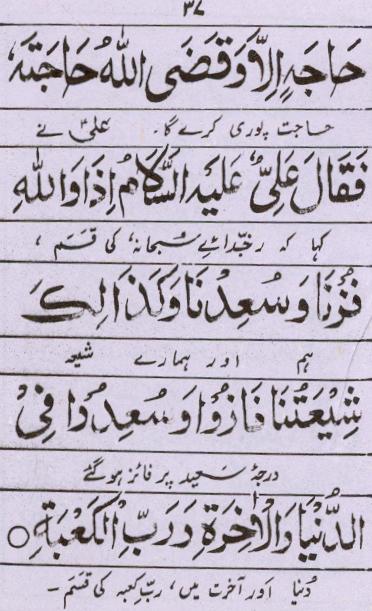 ٣٧
حَاجَةٍ اِلَّا وَقَضَى اللهُ حَاجَتَهٗ
حاجت پوری کرے گا۔ علیؑ نے
فَقَالَ عَلِیٌّ عَلَیْهِ السَّلَامُ اِذًا وَاللهِ
کہا کہ خدائے سبحانہ، کی قسم ،
فُزْنَا وَسُعِدْنَا وَكَذَالِكَ
ہم اور ہمارے شیعہ
شِیْعَتُنَا فَازُوْا وَسُعِدُوْا فِیْ
درجۂ سعید پر فائز ہو گئے
الدُّنْیَا وَالْاٰخِرَةِ وَرَبِّ الْكَعْبَةِ ○
دُنیا اور آخرت میں، ربِّ کعبہ کی قسم۔